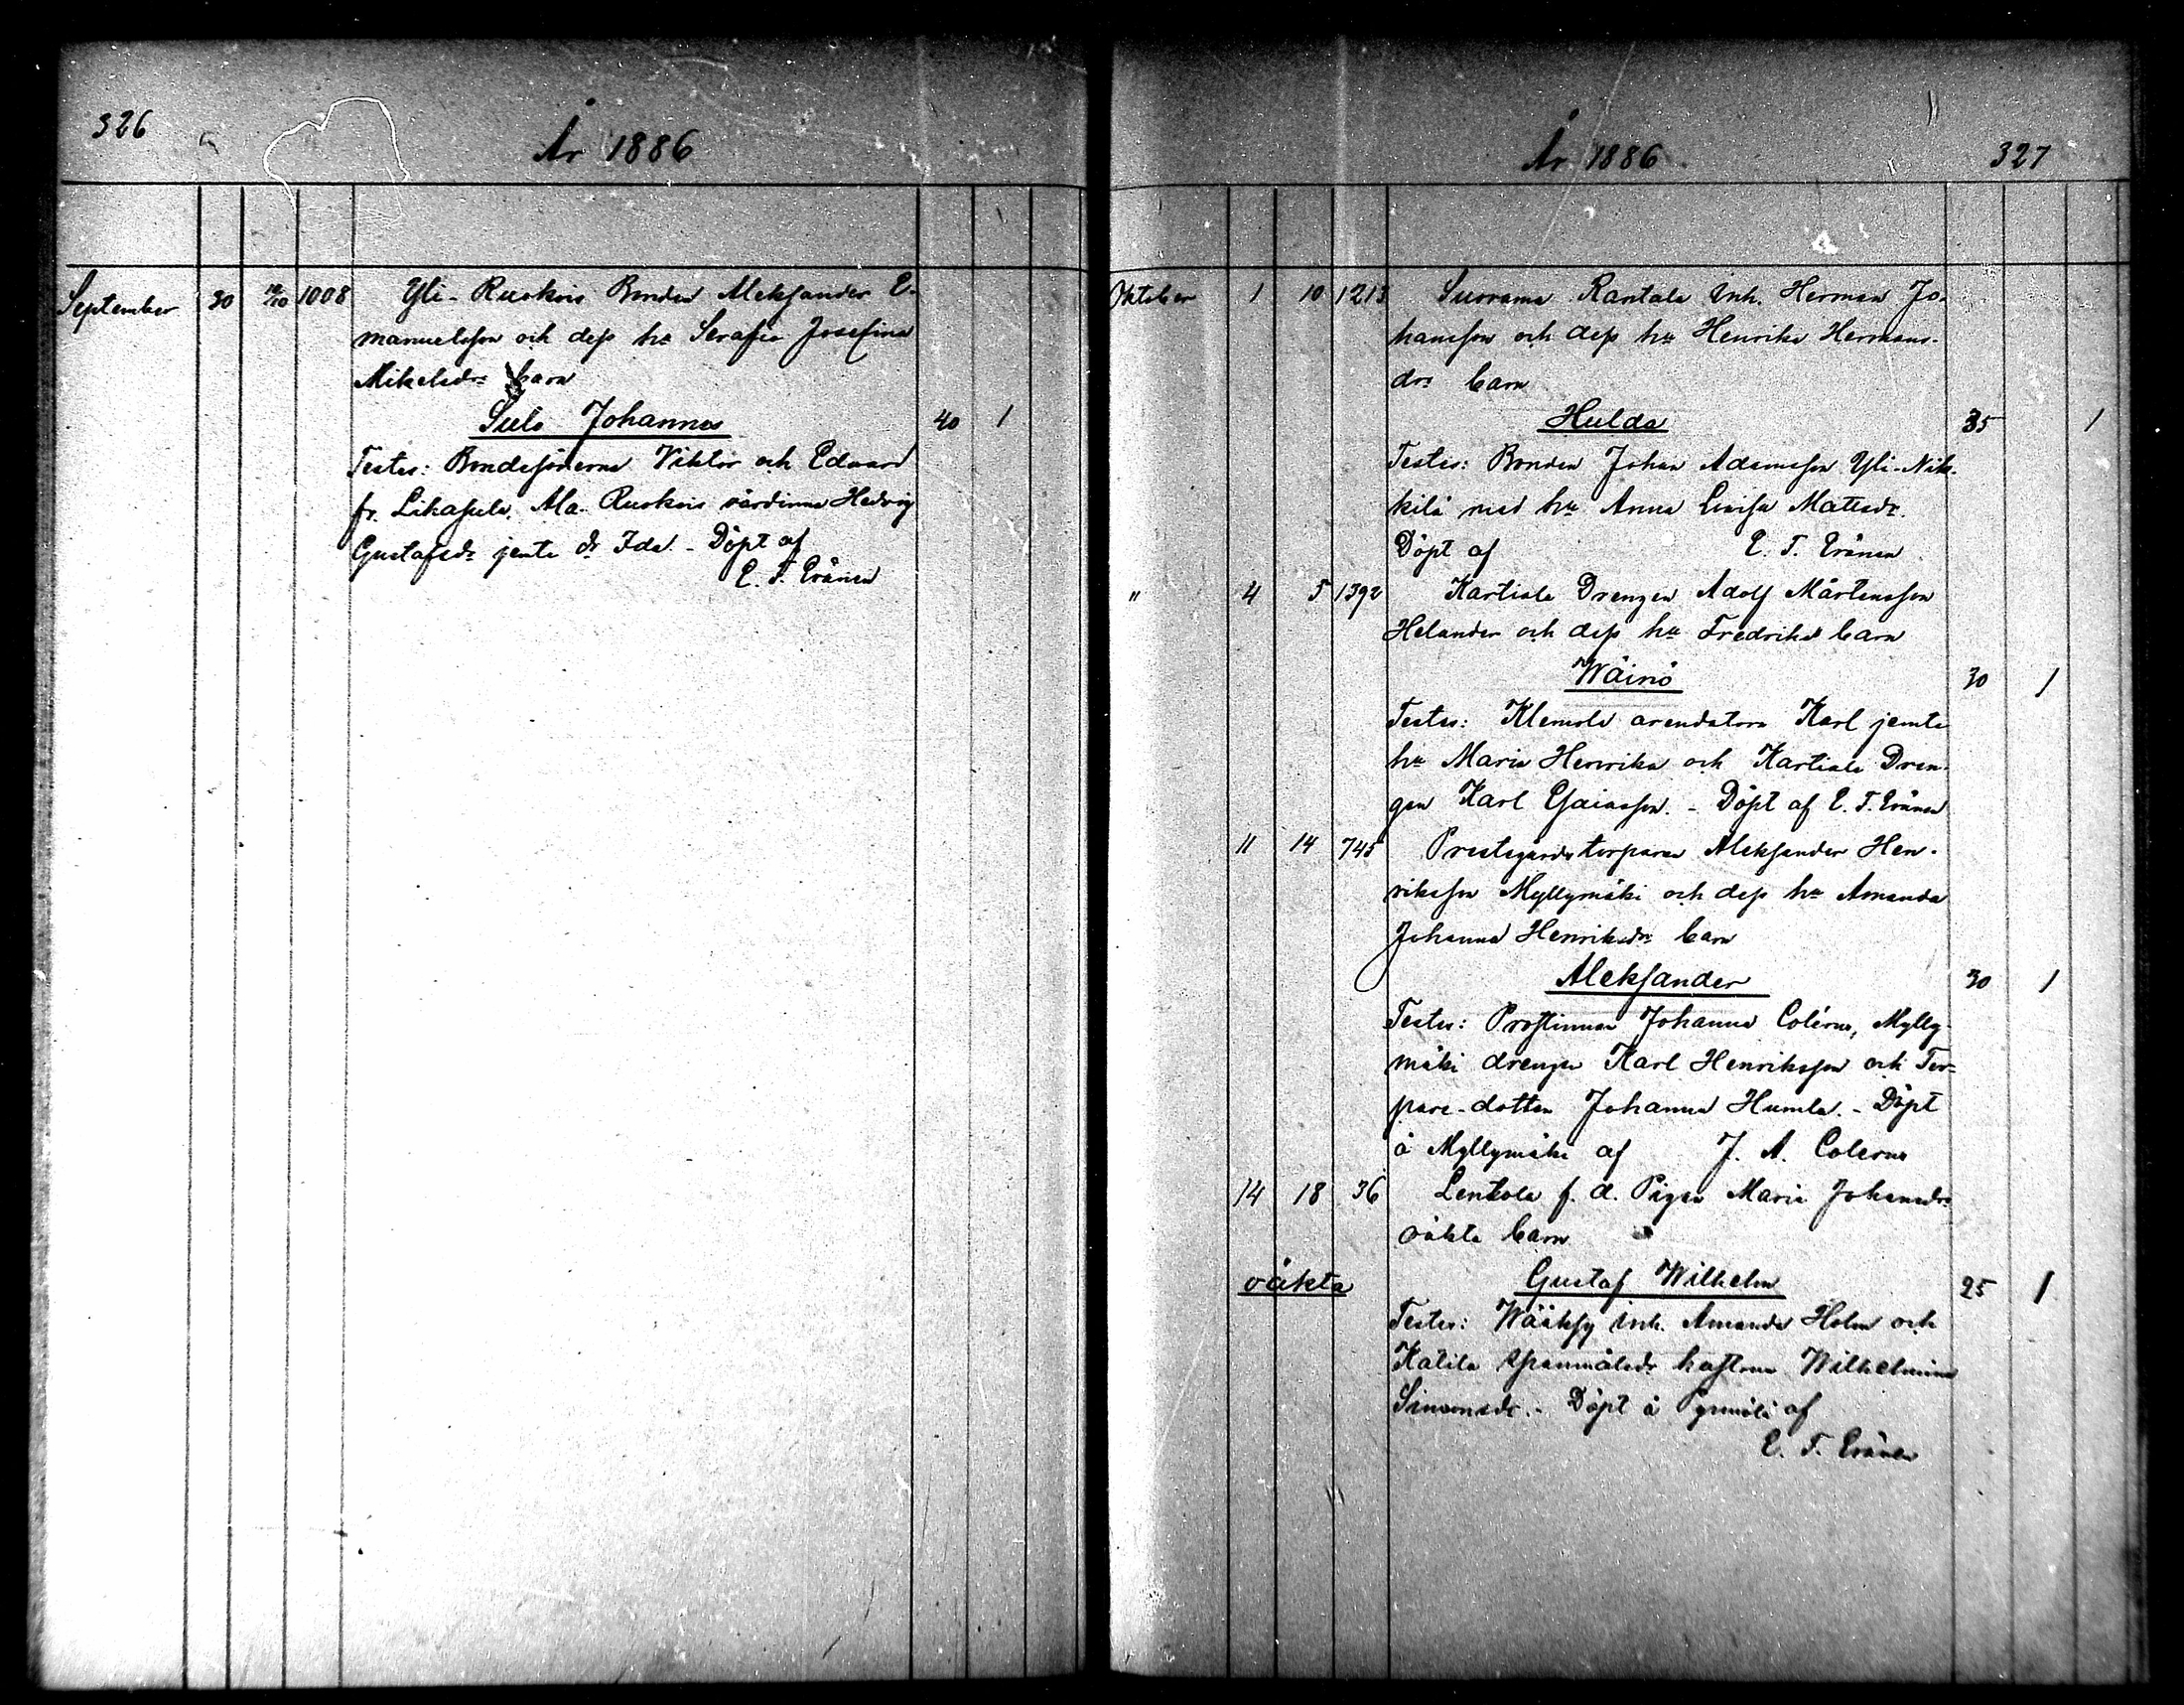 326
År 1886
September 30 10/10 1008 Yli-Ruokois Bonden Aleksander E-
manuelsson och dess hu Serafia Josefina
Mikelsdr barn
Sulo Johannes 40 1
Testes: Bondesönerna Viktor och Edvard
fr. Likasula, Ala-Ruokois värdinna Hedvig
Gustafsdr jemte dr Ida. - Döpt af
E. F. Eränen
År 1886
327
Oktober 1 10 1213 Suorama Rantala Inh. Herman Jo-
hansson och dess hu Henrika Hermans-
dr: barn
Hulda 35 1
Testes: Bonden Johan Adamsson Yli-Nik-
kilä med hu Anna Lovisa Mattsdr.
Döpt af E. F. Eränen
" 4 5 1392 Kartiala Drengen Adolf Mårtensson
Helander och dess hu Fredrika barn
Wäinö 30 1
Testes: Klemola arendatorn Karl jemte
hu Maria Henrika och Kartiala Dren-
gen Karl Esaiasson. - Döpt af E. F. Eränen
11 14 745 Prestegårds torparen Aleksander Hen-
riksson Myllymäki och dess hu Amanda
Johanna Henriksdr barn
Aleksander 30 1
Testes: Prostinnan Johanna Colérus, Mylly-
mäki drengen Karl Henriksson och Tor-
pare-dottern Johanna Humla. - Döpt
å Myllymäki af J. A. Colerus
14 18 36 Lentola f. d. Pigan Maria Johansdr:
oäkta barn
oäkta Gustaf Wilhelm 25 1
Testes: Wääksy Inh. Amanda Holm och
Kätilä hustrun Wilhelmina
Simonsdr. - Döpt å af
E. F. Eränen